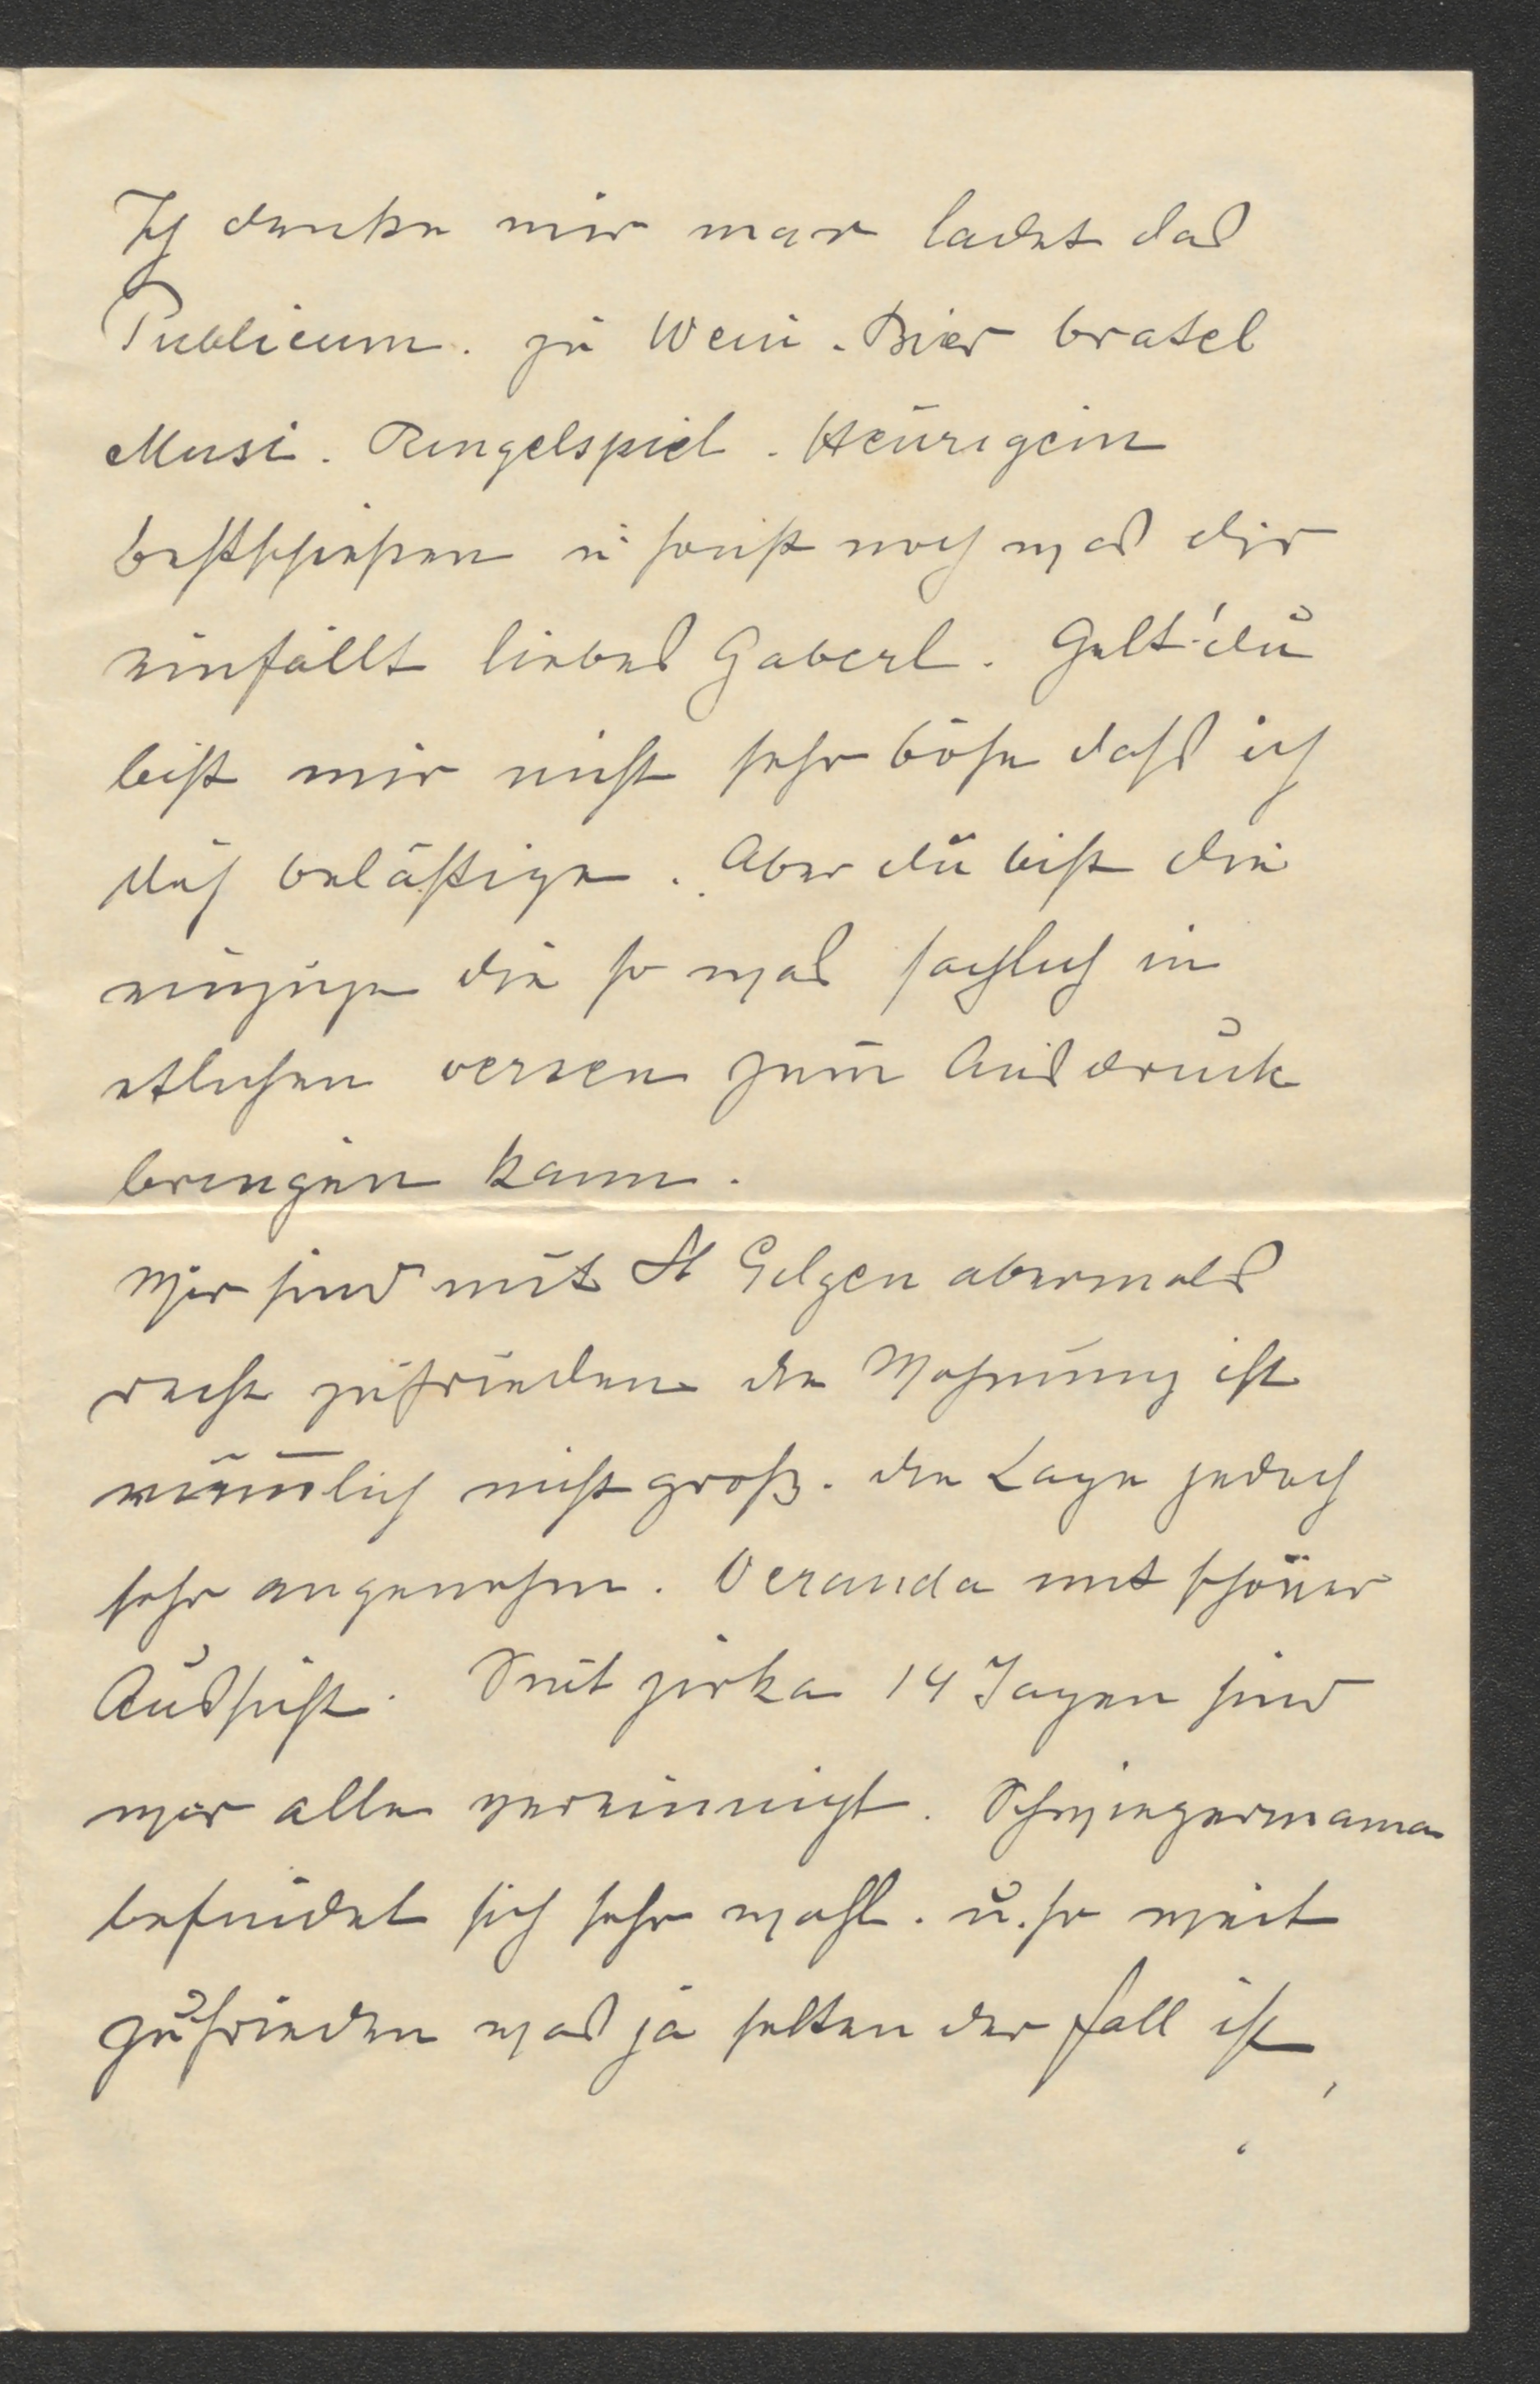 Ich denke mir man ladet das
Publicum. zu Wein. Bier bratel
Musi. Ringelspiel. Heurigein
bestschießen u sonst noch was dir
einfällt liebes Gaberl. Gelt! du
bist mir nicht sehr böse dass ich
dich belästige. Aber du bist die
einzige die so was fachlich in
etlichen versen zum Ausdruck
bringen kann.
Wir sind mit St Gilgen abermals
recht zufrieden die Wohnung ist
nämlich nicht groß. die Lage jedoch
sehr angenehm. Veranda mit schöner
Aussicht. Seit zirka 14 Tagen sind
wir alle vereinnigt. Schwiegermama
befindet sich sehr wohl. u. so weit
zufrieden was ja selten der fall ist,